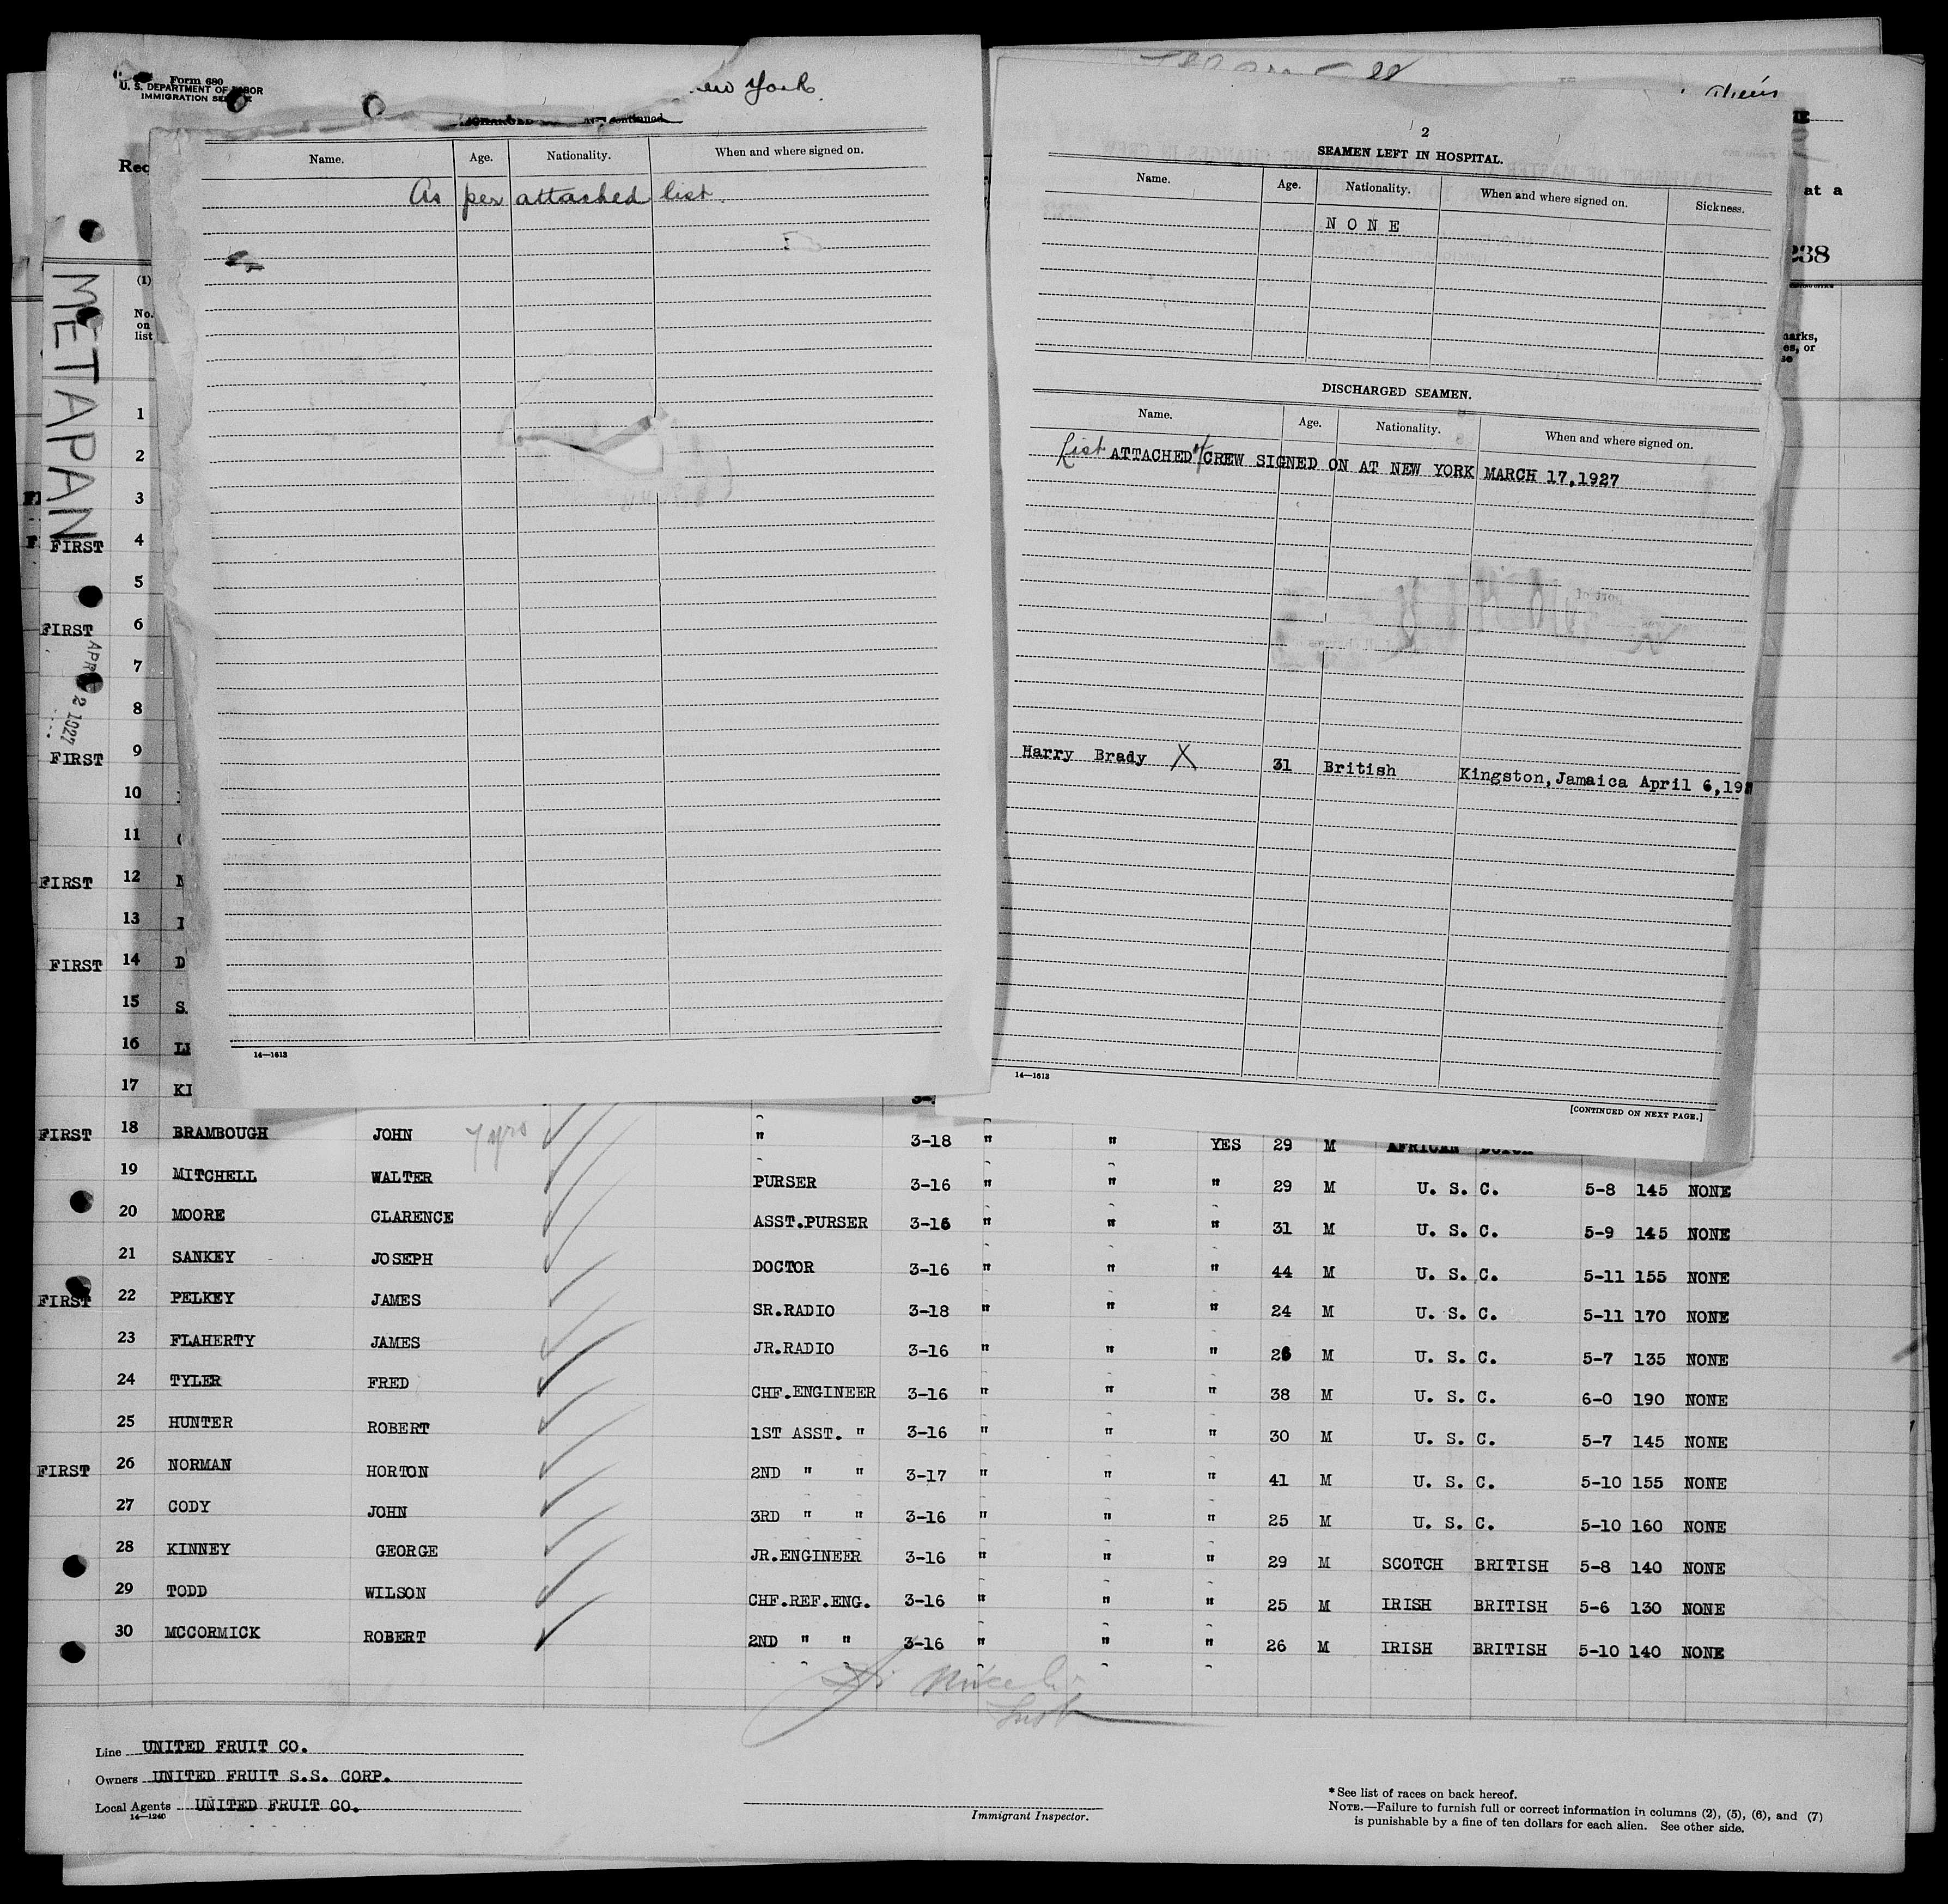 Form 680
U. S. DEPARTMENT OF LABOR
IMMIGRATION SERVICE
York
continued
Name. Age. Nationality. When and where signed on.
As per attached list.
14—1613
2
SEAMEN LEFT IN HOSPITAL.
Name. Age. Nationality. When and where signed on. Sickness.
NONE
DISCHARGED SEAMEN.
Name. Age. Nationality. When and where signed on.
List ATTACHED of CREW SIGNED ON AT NEW YORK MARCH 17,1927
Harry Brady X 31 British Kingston, Jamaica April 6,19
14—1613
[CONTINUED ON NEXT PAGE.]
at a
238
METAPAN
APR 2 1927
(1)
No.
on
list
1
2
3
FIRST 4
5
FIRST 6
7
8
FIRST 9
10
11
FIRST 12
13
FIRST 14 D
15 S
16
17 KI
FIRST 18 BRAMBOUGH JOHN 7 yrs " 3-18 " " YES 29 M AFRICAN DUTCH
19 MITCHELL WALTER PURSER 3-16 " " " 29 M U. S. C. 5-8 145 NONE
20 MOORE CLARENCE ASST.PURSER 3-16 " " " 31 M U. S. C. 5-9 145 NONE
21 SANKEY JOSEPH DOCTOR 3-16 " " " 44 M U. S. C. 5-11 155 NONE
FIRST 22 PELKEY JAMES SR.RADIO 3-18 " " " 24 M U. S. C. 5-11 170 NONE
23 FLAHERTY JAMES JR.RADIO 3-16 " " " 26 M U. S. C. 5-7 135 NONE
24 TYLER FRED CHF.ENGINEER 3-16 " " " 38 M U. S. C. 6-0 190 NONE
25 HUNTER ROBERT 1ST ASST. " 3-16 " " " 30 M U. S. C. 5-7 145 NONE
FIRST 26 NORMAN HORTON 2ND " " 3-17 " " " 41 M U. S. C. 5-10 155 NONE
27 CODY JOHN 3RD " " 3-16 " " " 25 M U. S. C. 5-10 160 NONE
28 KINNEY GEORGE JR.ENGINEER 3-16 " " " 29 M SCOTCH BRITISH 5-8 140 NONE
29 TODD WILSON CHF.REF.ENG. 3-16 " " " 25 M IRISH BRITISH 5-6 130 NONE
30 MCCORMICK ROBERT 2ND " " 3-16 " " " 26 M IRISH BRITISH 5-10 140 NONE
Line UNITED FRUIT CO.
Owners UNITED FRUIT S.S. CORP.
Local Agents UNITED FRUIT CO.
14—1240
Immigrant Inspector.
*See list of races on back hereof.
NOTE.—Failure to furnish full or correct information in columns (2), (5), (6), and (7)
is punishable by a fine of ten dollars for each alien. See other side.